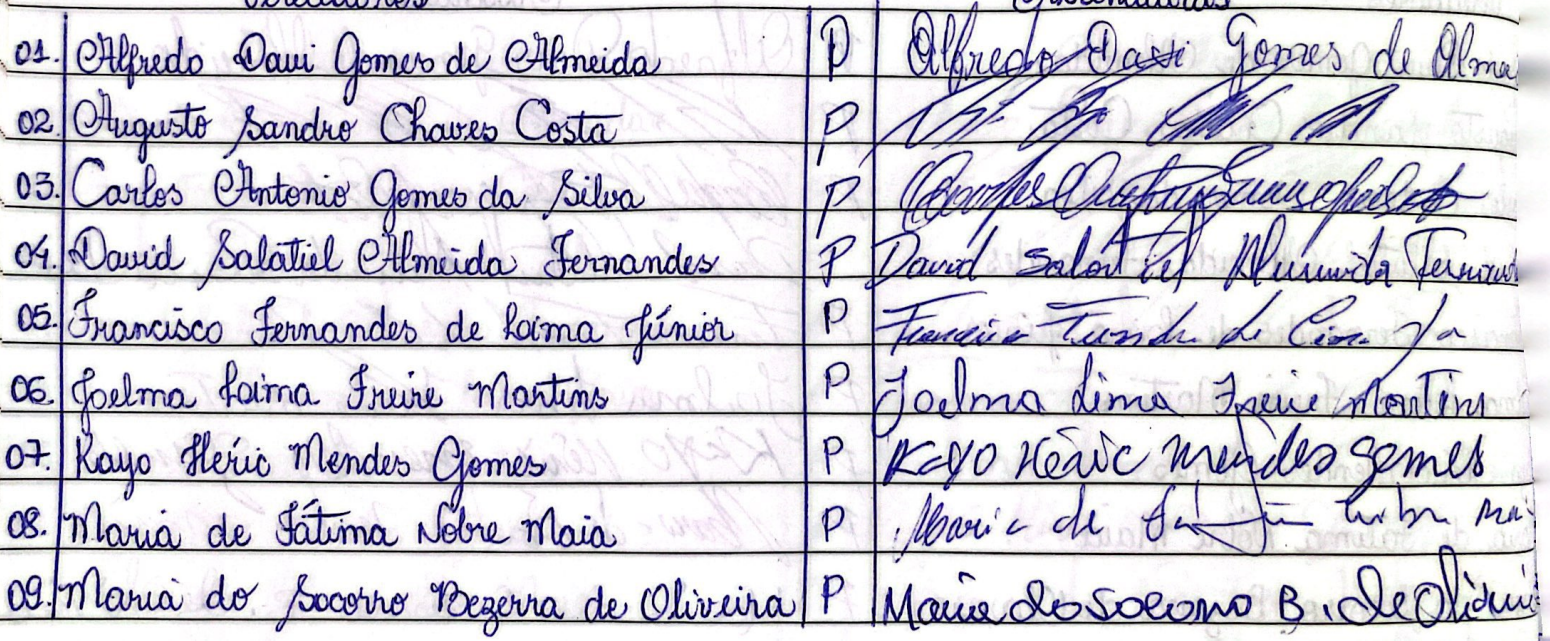 Vereadores Assinaturas
01. Alfredo Davi Gomes de Almeida P Alfredo Davi Gomes de Alme
02. Augusto Sandro Chaves Costa P
03. Carlos Antonio Gomes da Silva P
04. David Salatiel Almeida Fernandes P David Salatiel Almeida Fernand
05. Francisco Fernandes de Loima Júnior P
06. Joelma Loima Freire Martins P Joelma Lima Freire Martins
07. Kayo Héric Mendes Gomes P Kayo Héric Mendes Gomes
08. Maria de Fátima Nobre Maia P Maria de
09. Maria do Socorro Bezerra de Oliveira P Maria do Socorro B. de Oliveir